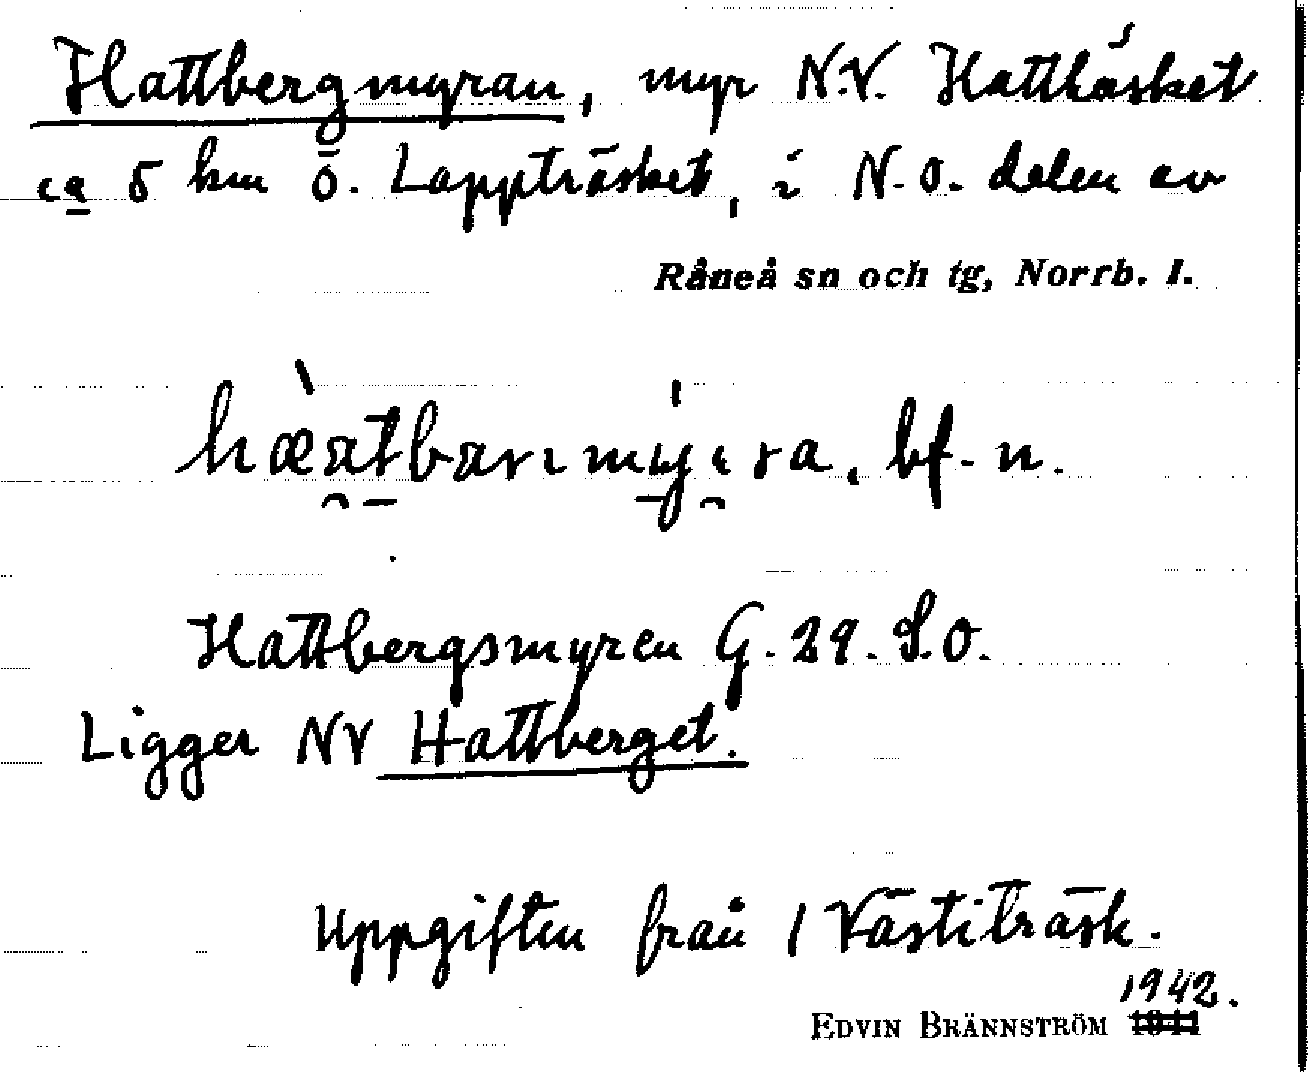 Hattbergmyran, myr N.V. Hattläsket
ca 5 km ö. Lappträsket, i N.O. delen av
Råneå sn och tg, Norrb. l.
bf. n.
Hattbergsmyren G. 29. S.O.
Ligger NV Hattberget.
Uppgiften från 1 Västiträsk.
1942.
EDVIN BRÄNNSTRÖM 1941